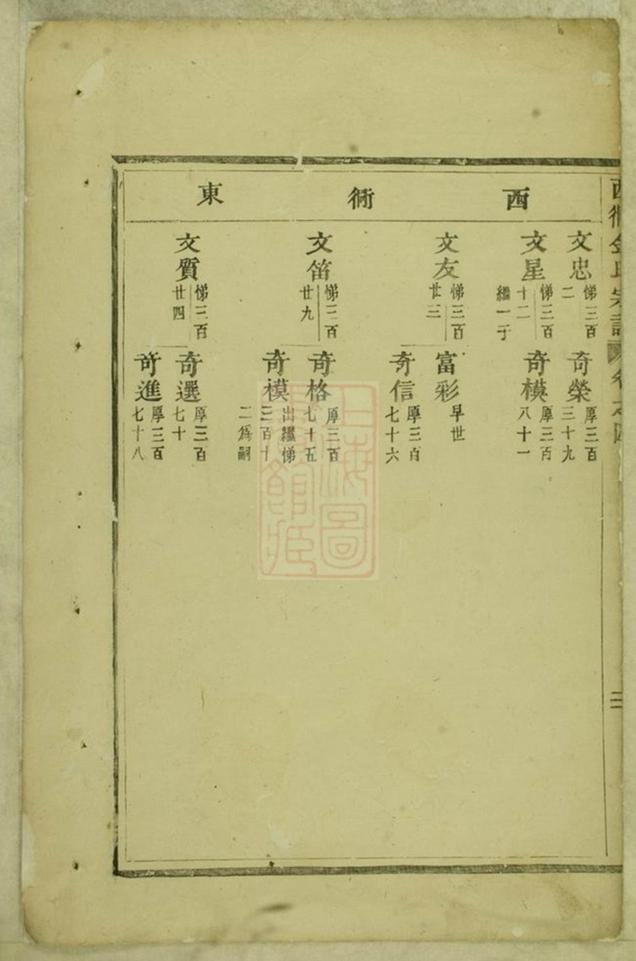 西衕金氏宗譜
卷之四
二
西衕東
文忠
悌三百
二
奇榮
厚三百
三十九
文星
悌三百
十二
繼一子
奇模
厚三百
八十一
文友
悌三百
廿三
富彩
早世
奇信
厚三百
七十六
文笛
悌三百
廿九
奇格
厚三百
七十五
奇模
出繼悌
三百十
二為嗣
文質
悌三百
廿四
奇選
厚三百
七十
奇進
厚三百
七十八